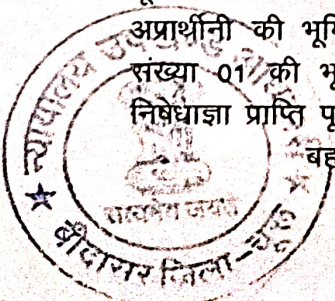 अप्रार्थीनी की भूमि
संख्या 01 की भू
निषेधाज्ञा प्राप्ति पू
बह
न्यायालय उपखण्ड
सत्यमेव जयते
बीदासर जिला-चूरू